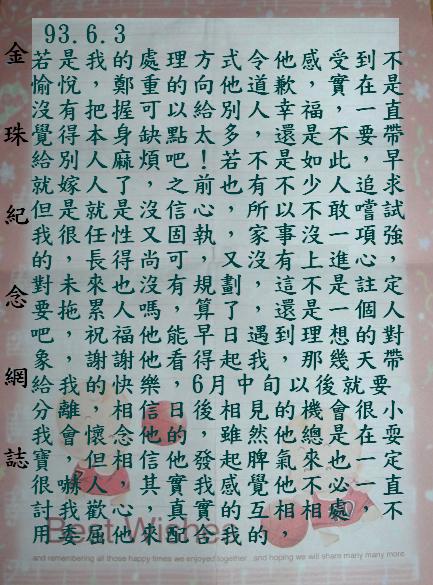 93.6.3
若是我的處理方式令他感受到不
愉悅，鄭重的向他道歉，實在是
沒有把握可以給別人幸福，一直
覺得本身缺點太多，還是不要帶
給別人麻煩吧！若不是如此，早
就嫁人了，之前也有不少人追求
但是就是沒信心，所以不敢嚐試
我很任性又固執，家事沒一項強
的，長得尚可，又沒有上進心，
對未來也沒有規劃，這不是註定
要拖累人嗎，算了，還是一個人
吧，祝福他能早日遇到理想的對
象，謝謝他看得起我，那幾天帶
給我的快樂，6月中旬以後就要
分離，相信日後相見的機會很小
我會懷念他的，雖然他總是在耍
寶，但相信他發起脾氣來也一定
很嚇人，其實我感覺他不必一直
討我歡心，真實的互相相處，不
用委屈他來配合我的，
金珠紀念網誌
Best Wishes
and remembering all those happy times we enjoyed together and hoping we will share many many more